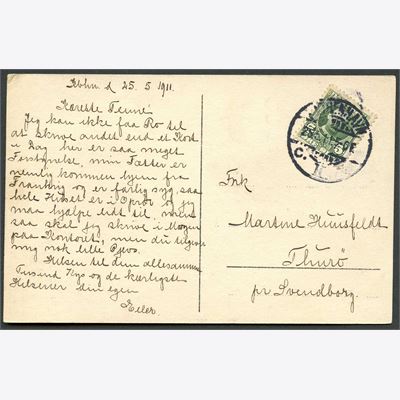 Kbhn d 25. 5 1911.
Kæreste
Jeg kan ikke faa Ro til
at skrive andet end et Kort
i Dag her er saa meget
Forstyrelse, min Fætter er
nemlig kommen hjem fra
Frankrig og er farlig syg, saa
hele Huset er i Oprør og jeg
maa hjælpe lidt til, men
saa skal jeg skrive i Morgen
paa Kontoret, men du tilgiver
mig nok lille
Hilsen til dem allesammen
Tusind Kys og de kærligste
Hilsener din egen
Ejler
Frk
Martine Huusfeldt
Thurö
pr Svendborg.